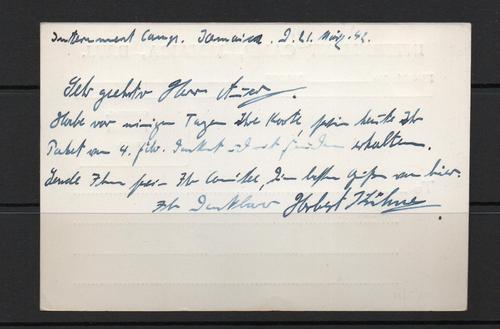 Internment Camp. Jamaica. D. 21. März. 42.
Sehr geehrter Herr Auer.
Habe vor einigen Tagen Ihre Karte, sowie heute Ihr
Paket vom 4. Febr. Dankend und mit Freuden erhalten.
Sende Ihnen Ihr die besten Grüße von hier.
Ihr Dankbarer Herbert Kühne.